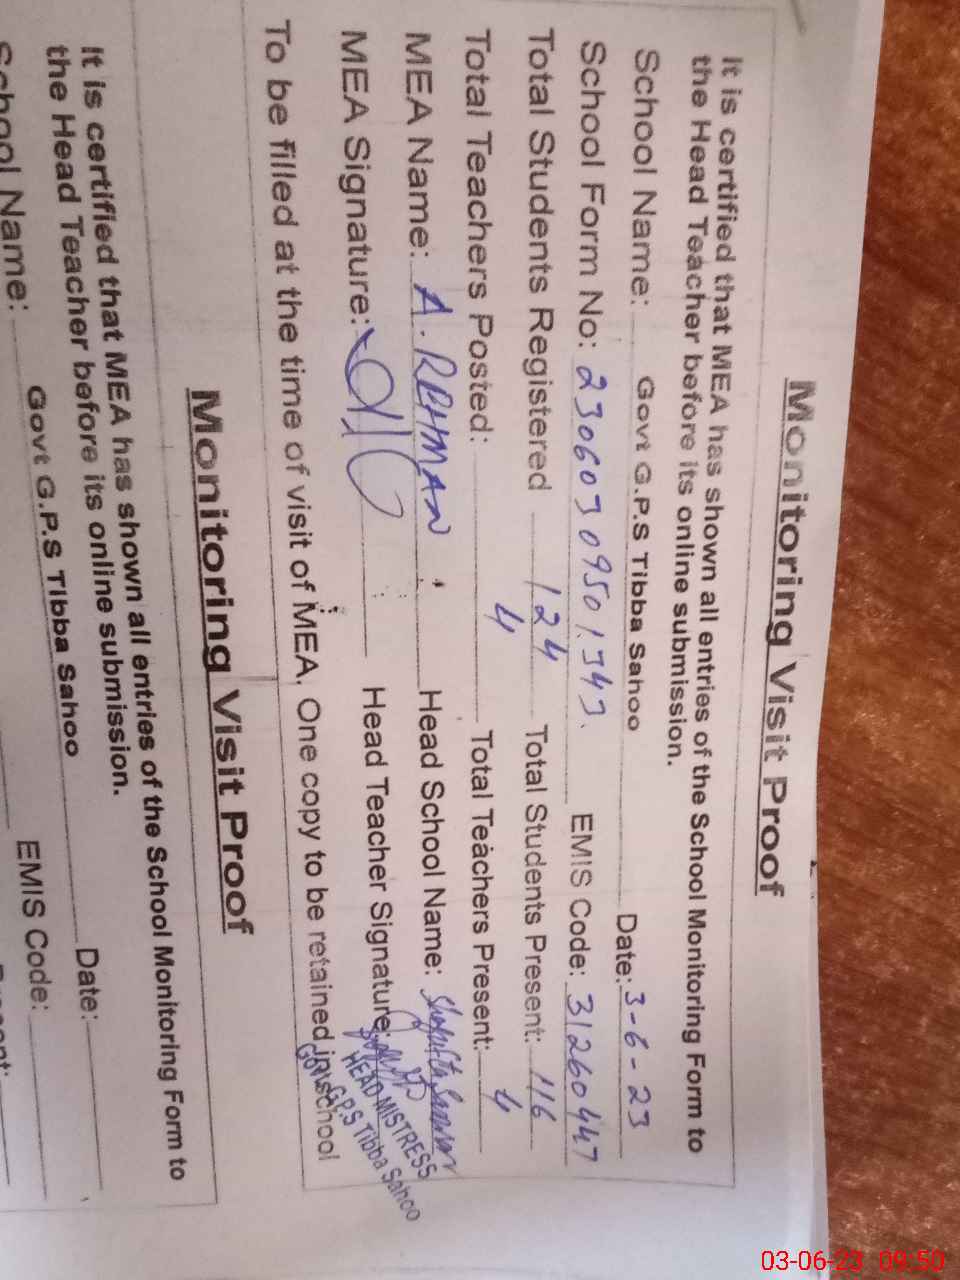 Monitoring Visit Proof
It is certified that MEA has shown all entries of the School Monitoring Form to
the Head Teacher before its online submission.
School Name: Govt G.P.S Tibba Sahoo Date: 3-6-23
School Form No: 23060309501343. EMIS Code: 31260447
Total Students Registered 124 Total Students Present: 116
Total Teachers Posted: 4 Total Teachers Present: 4
MEA Name: A. REHMAN Head School Name:
MEA Signature: Head Teacher Signature:
HEAD MISTRESS
Govt. G.P.S Tibba Sahoo
To be filled at the time of visit of MEA. One copy to be retained in school
Monitoring Visit Proof
It is certified that MEA has shown all entries of the School Monitoring Form to
the Head Teacher before its online submission.
School Name: Govt G.P.S Tibba Sahoo Date:
EMIS Code:
03-06-23 09:50